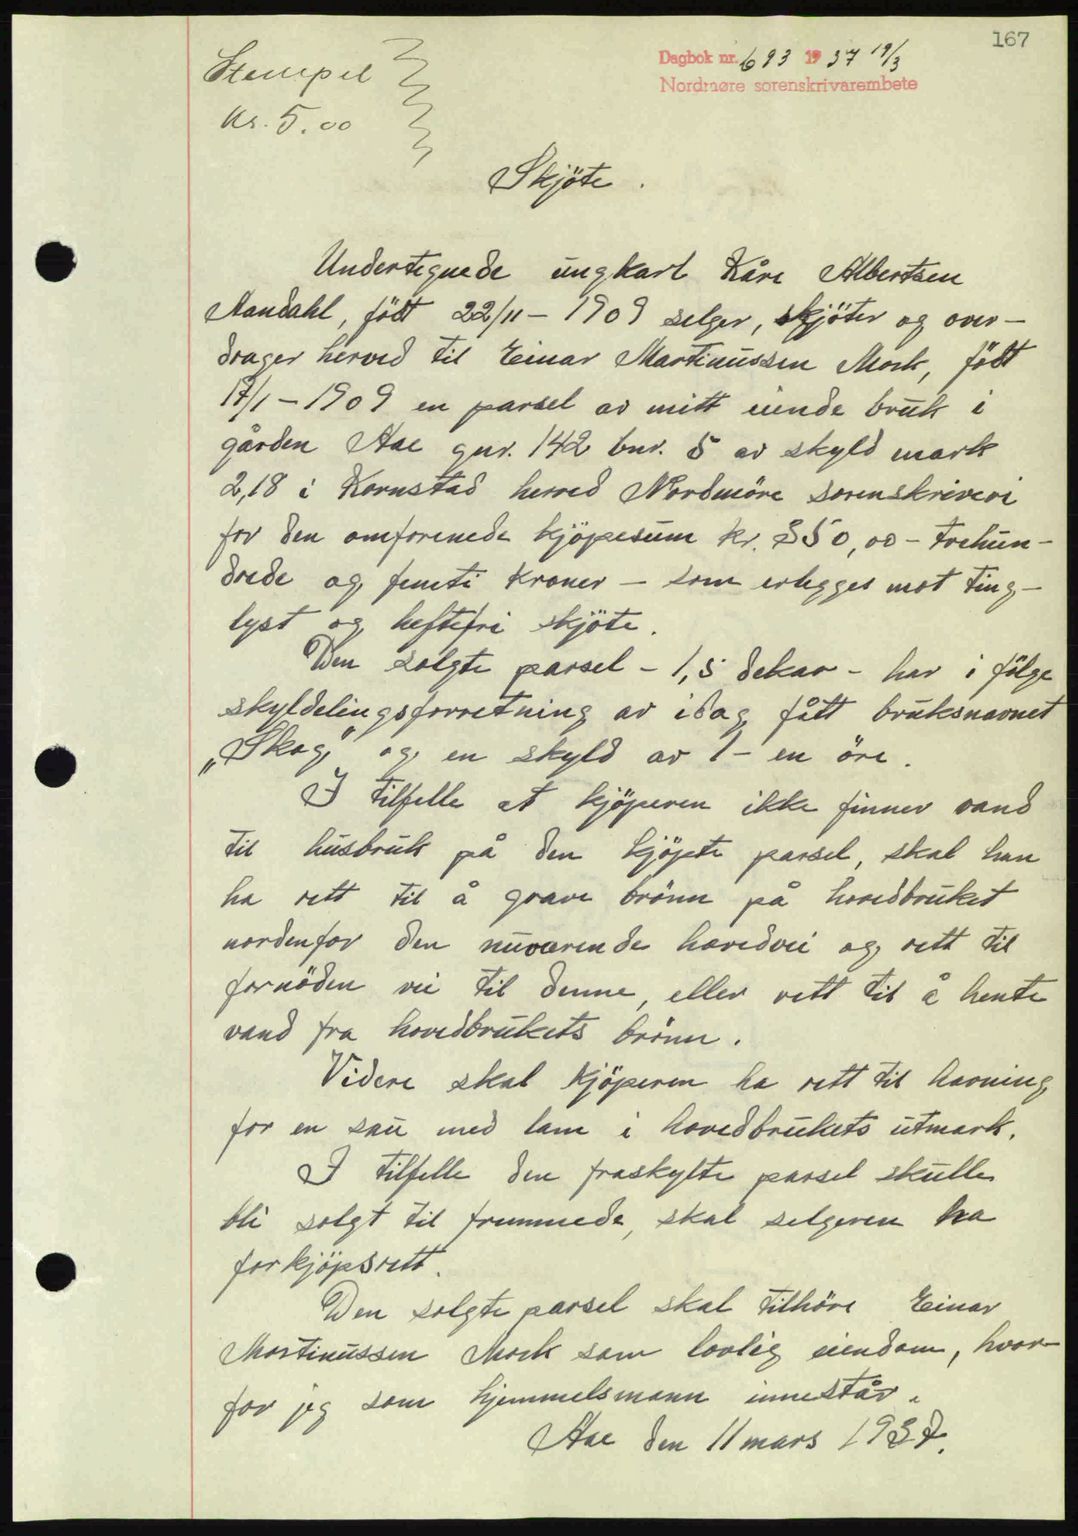 167
Dagbok nr. 693 1937 19/3
Nordmøre sorenskrivarembete
Stempel
Kr. 5.00
Skjöte.
Undertegnede ungkarl Kåre Albertsen
Aandahl, født 22/11 - 1909 selger, skjöter og over-
drager herved til Einar Martinussen Mork, födt
17/1 - 1909 en parsel av mitt eiende bruk i
gården Aae gnr. 142 bnr. 5 av skyld mark
2,18 i Kornstad herred Nordmöre sorenskriveri
for den omforenede kjöpesum kr. 350,00 - trehun-
drede og femti kroner - som erlegges mot ting-
lyst og heftefri skjöte.
Den solgte parsel - 1,5 dekar - har i fölge
skyldelingsforretning av idag fått bruksnavnet
„Skog" og en skyld av 1 - en öre.
I tilfelle at kjöperen ikke finner vand
til husbruk på den kjöpte parsel, skal han
ha rett til å grave brönn på hovedbruket
nordenfor den nuværende hovedvei og rett til
fornöden vei til denne, eller rett til å hente
vand fra hovedbrukets brönn.
Videre skal kjöperen ha rett til havning
for en sau med lam i hovedbrukets utmark.
I tilfelle den fraskylte parsel skulle
bli solgt til fremmede, skal selgeren ha
forkjöpsrett.
Den solgte parsel skal tilhöre Einar
Martinussen Mork som lovlig eiendom, hvor-
for jeg som hjemmelsmann innestår.
Aae den 11 mars 1937.